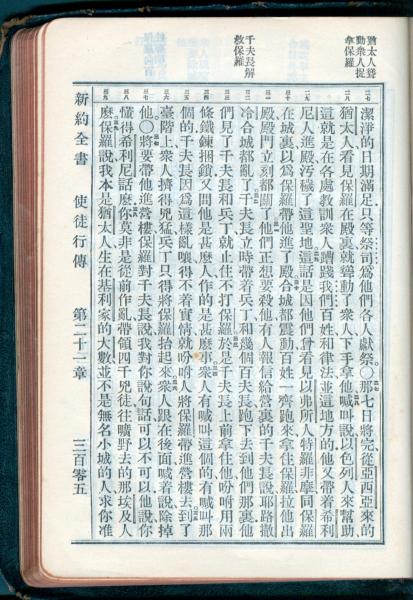 猶太人聳
動衆人捉
拿保羅
千夫長解
救保羅
潔淨的日期滿足只等祭司爲他們各人獻祭○那七日將完從亞西亞來的
猶太人看見保羅在殿裏就聳動了衆人下手拿他喊叫說以色列人來幫助
這就是在各處教訓衆人蹧踐我們百姓和律法並這地方的他又帶着希利
尼人進殿污穢了這聖地這話是因他們曾看見以弗所人特羅非摩同保羅
在城裏以爲保羅帶他進了殿合城都震動百姓一齊跑來拿住保羅拉他出
殿殿門立刻都關了他們正想要殺他有人報信給營裏的千夫長說耶路撒
冷合城都亂了千夫長立時帶着兵丁和幾個百夫長跑下去到他們那裏他
們見了千夫長和兵丁就止住不打保羅於是千夫長上前拿住他吩咐用兩
條鐵鍊捆鎖又問他是甚麼人作的是甚麼事衆人有喊叫這個的有喊叫那
個的千夫長因爲這樣亂嚷得不着實情就吩咐人將保羅帶進營樓去到了
臺階上衆人擠得兇猛兵丁只得將保羅抬起來衆人跟在後面喊着說除掉
他○將要帶他進營樓保羅對千夫長說我對你說句話可以不可以他說你
懂得希利尼話麼你莫非是從前作亂帶領四千兇徒往曠野去的那埃及人
麼保羅說我本是猶太人生在基利家的大數並不是無名小城的人求你准
新約全書 使徒行傳 第二十一章 三百零五